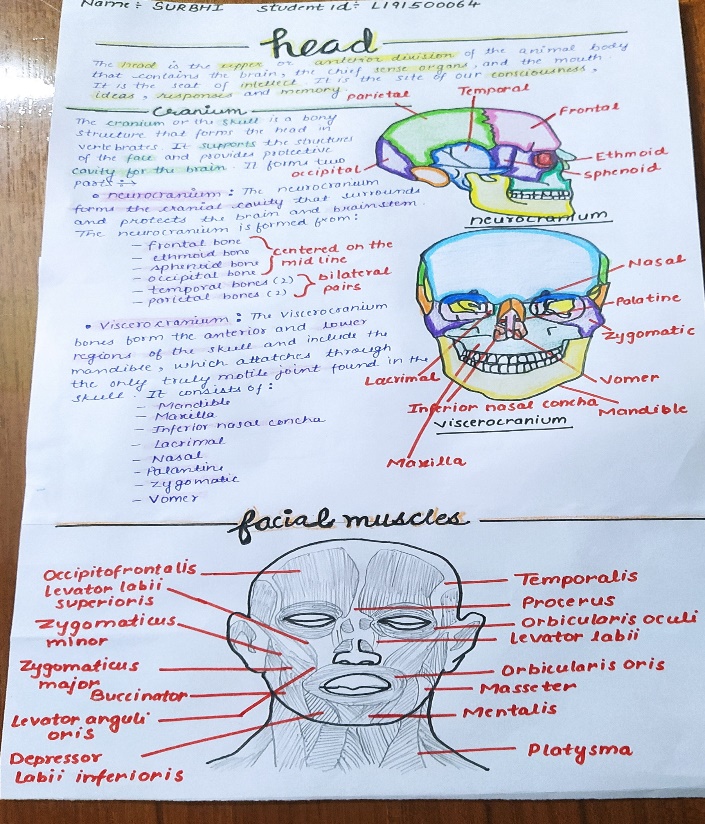 Name : SURBHI    Student id : L191500064
head
The head is the upper or anterior division of the animal body
that contains the brain, the chief sense organs, and the mouth.
It is the seat of intellect. It is the site of our consciousness,
ideas, responses and memory.
Cranium
The cranium or the skull is a bony
structure that forms the head in
vertebrates. It supports the structures
of the face and provides protective
cavity for the brain. It forms two
parts :→
• neurocranium : The neurocranium
forms the cranial cavity that surrounds
and protects the brain and brainstem.
The neurocranium is formed from:
— frontal bone
— ethmoid bone
— sphenoid bone
— occipital bone
centered on the
mid line
— temporal bones (2)
— parietal bones (2)
bilateral
pairs
parietal
Temporal
Frontal
Ethmoid
sphenoid
occipital
neurocranium
• Viscerocranium : The viscerocranium
bones form the anterior and lower
regions of the skull and include the
mandible, which attatches through
the only truly motile joint found in the
skull. It consists of :
— Mandible
— Maxilla
— Inferior nasal concha
— Lacrimal
— Nasal
— Palantine
— Zygomatic
— Vomer
Nasal
Palatine
Zygomatic
Lacrimal
Vomer
Inferior nasal concha
Mandible
viscerocranium
Maxilla
facial muscles
Occipitofrontalis
Levator labii
superioris
Zygomaticus
minor
Zygomaticus
major
Buccinator
Levator anguli
oris
Depressor
Labii inferioris
Temporalis
Procerus
Orbicularis oculi
Levator labii
Orbicularis oris
Masseter
Mentalis
Platysma